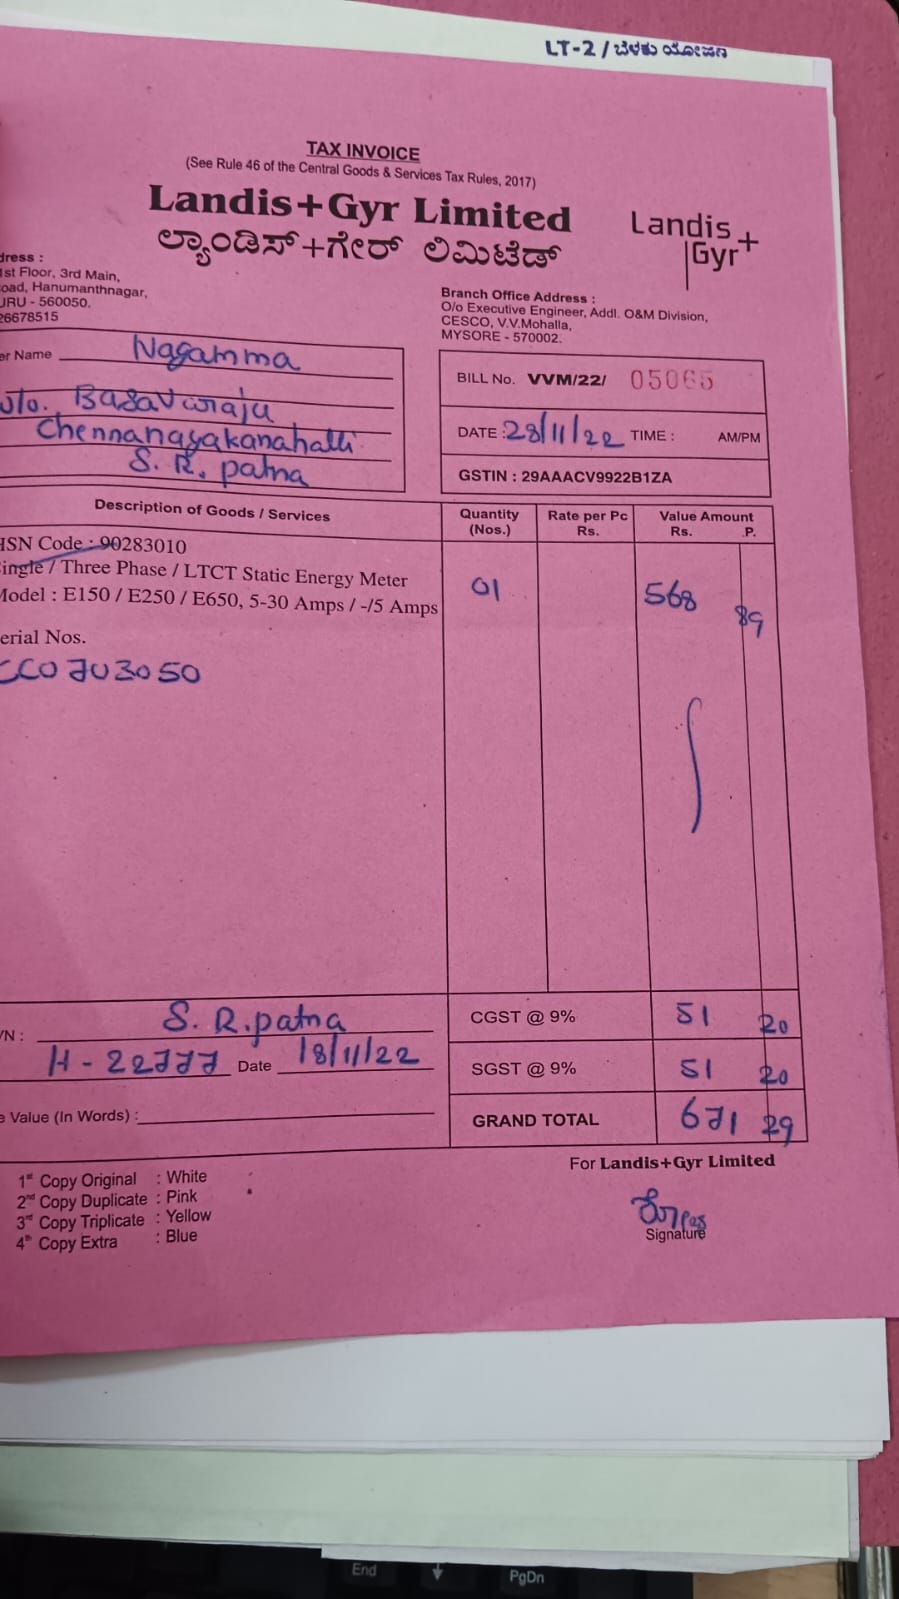 LT-2 / ಬೆಳಕು ಯೋಜನೆ
TAX INVOICE
(See Rule 46 of the Central Goods & Services Tax Rules, 2017)
Landis+Gyr Limited
ಲ್ಯಾಂಡಿಸ್+ಗೇರ್ ಲಿಮಿಟೆಡ್
Landis
Gyr+
dress :
1st Floor, 3rd Main,
oad, Hanumanthnagar,
URU - 560050.
26678515
Branch Office Address :
O/o Executive Engineer, Addl. O&M Division,
CESCO, V.V.Mohalla,
MYSORE - 570002.
er Name Nagamma
w/o. Basavaraju
Chennanayakanahalli
S. R. patna
BILL No. VVM/22/ 05065
DATE : 28/11/22 TIME : AM/PM
GSTIN : 29AAACV9922B1ZA
Description of Goods / Services Quantity (Nos.) Rate per Pc Rs. Value Amount Rs. P.
HSN Code : 90283010
ingle / Three Phase / LTCT Static Energy Meter
Model : E150 / E250 / E650, 5-30 Amps / -/5 Amps 01 568 89
erial Nos.
CCO7U3050
/N : S. R. patna
H - 22777 Date 18/11/22
CGST @ 9% 51 20
SGST @ 9% 51 20
e Value (In Words) :
GRAND TOTAL 671 29
For Landis+Gyr Limited
1st Copy Original : White
2nd Copy Duplicate : Pink
3rd Copy Triplicate : Yellow
4th Copy Extra : Blue
Signature
End
PgDn